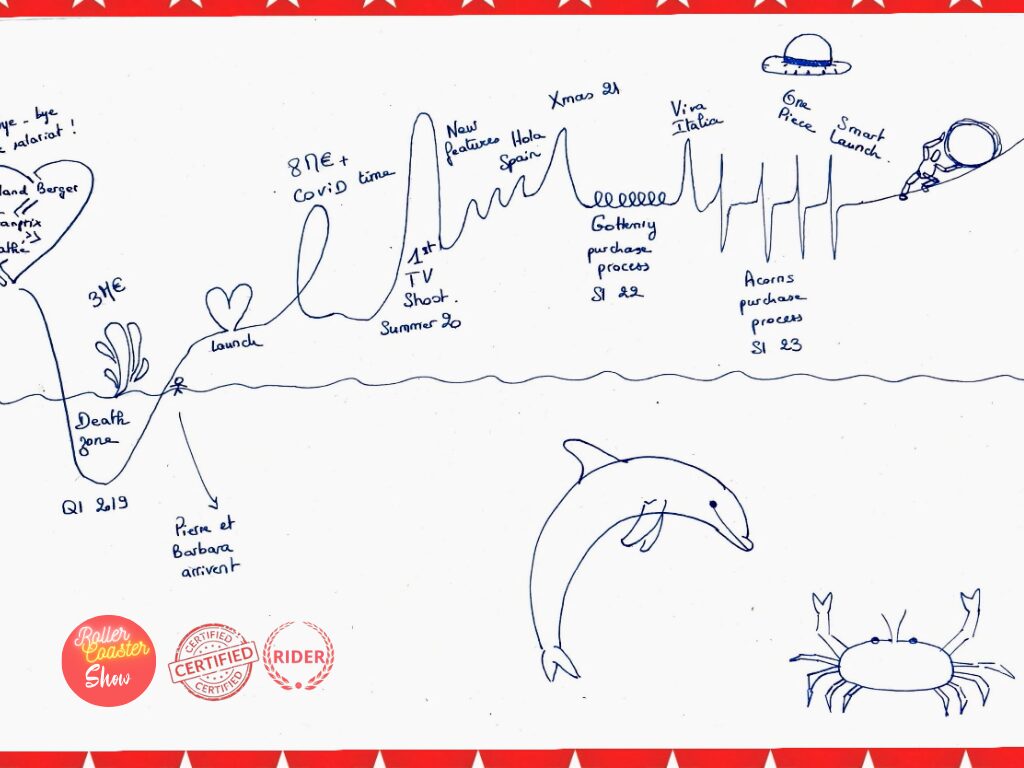 ye - bye
salariat !
land Berger
anprix
athé
3M€
Death
zone
Q1 2019
Pierre et
Barbara
arrivent
Launch
8M€ +
COVID time
1st
TV
Shoot.
Summer 20
New
features
Hola
Spain
Xmas 21
Gottenly
purchase
process
S1 22
Viva
Italia
Acorns
purchase
process
S1 23
One
Piece
Smart
Launch.
Roller
Coaster
Show
CERTIFIED
CERTIFIED
CERTIFIED
RIDER